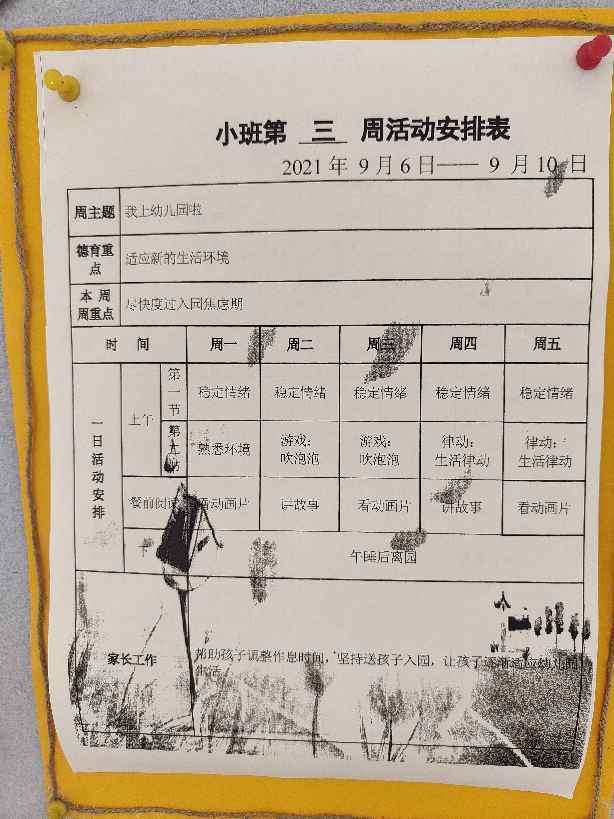 小班第 三 周活动安排表
2021年 9月6日—— 9 月 10 日
周主题 我上幼儿园啦
德育重点 适应新的生活环境
本 周 周重点 尽快度过入园焦虑期
时 间 周一 周二 周三 周四 周五
一日活动安排
上午
第一节 稳定情绪 稳定情绪 稳定情绪 稳定情绪 稳定情绪
第二节 熟悉环境 游戏：吹泡泡 游戏：吹泡泡 律动：生活律动 律动：生活律动
餐前阅读 看动画片 讲故事 看动画片 讲故事 看动画片
下 午睡后离园
家长工作 帮助孩子调整作息时间，坚持送孩子入园，让孩子逐渐适应幼儿园
生活